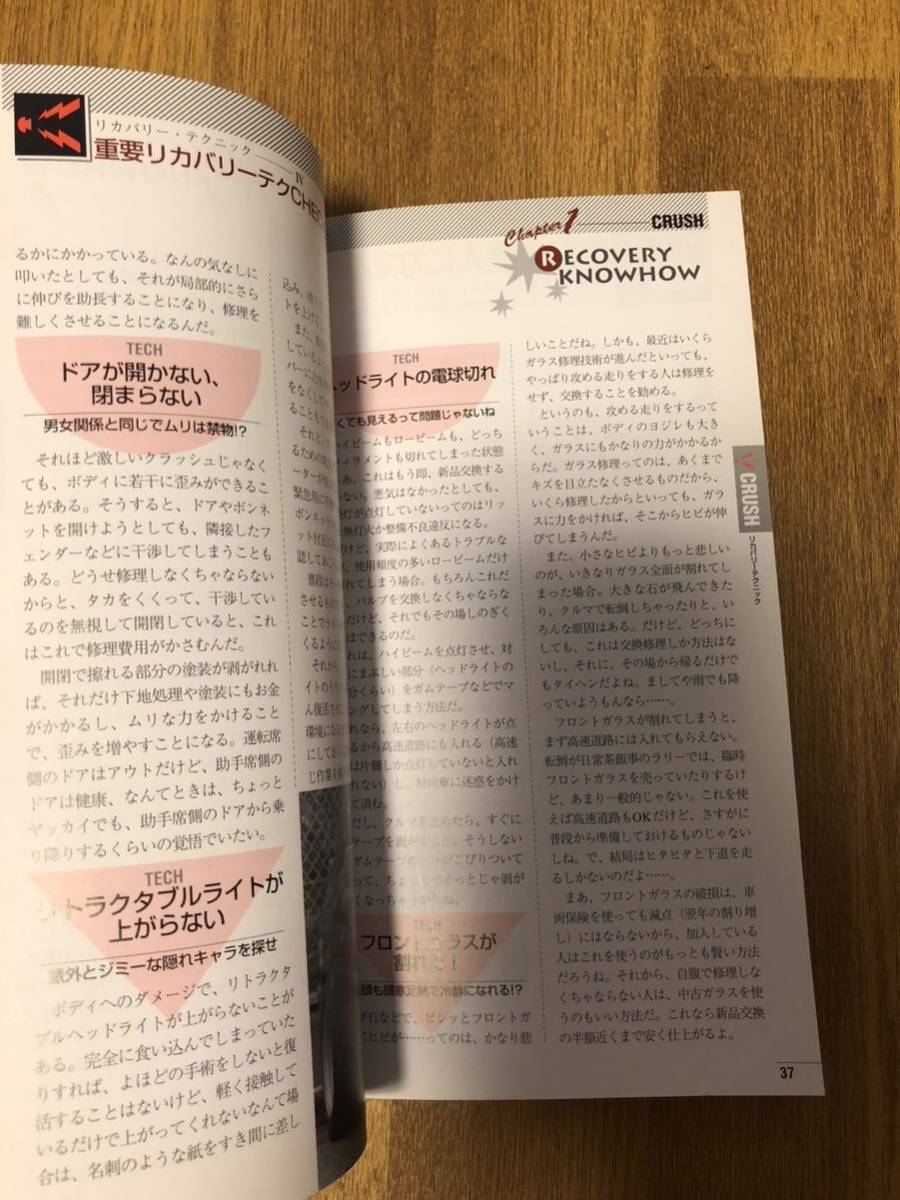 リカバリー・テクニック
IV
重要リカバリーテクCHE
るかにかかっている。なんの気なしに
叩いたとしても、それが局部的にさら
に伸びを助長することになり、修理を
難しくさせることになるんだ。
TECH
ドアが開かない、
閉まらない
男女関係と同じでムリは禁物!?
それほど激しいクラッシュじゃなく
ても、ボディに若干に歪みができるこ
とがある。そうすると、ドアやボンネ
ットを開けようとしても、隣接したフ
ェンダーなどに干渉してしまうことも
ある。どうせ修理しなくちゃならない
からと、タカをくくって、干渉してい
るのを無視して開閉していると、これ
はこれで修理費用がかさむんだ。
開閉で擦れる部分の塗装が剥がれれ
ば、それだけ下地処理や塗装にもお金
がかかるし、ムリな力をかけること
で、歪みを増やすことになる。運転席
側のドアはアウトだけど、助手席側の
ドアは健康、なんてときは、ちょっと
ヤッカイでも、助手席側のドアから乗
り降りするくらいの覚悟でいたい。
TECH
リトラクタブルライトが
上がらない
意外とジミーな隠れキャラを探せ
ボディへのダメージで、リトラクタ
ブルヘッドライトが上がらないことが
ある。完全に食い込んでしまっていた
りすれば、よほどの手術をしないと復
活することはないけど、軽く接触して
いるだけで上がってくれないなんて場
合は、名刺のような紙をすき間に差し
込み、
トを上げる
また、
しているよ
バーに
をなくし
ることも
それと
るための
ーターが
緊急用に
ボンネット
ット付近に
認してお
普段は
させるもの
ことでラ
くるように
それか
イトのト
ん復活させ
環境にな
にしてお
じ作業を
Chapter 1
CRUSH
RECOVERY
KNOWHOW
TECH
ッドライトの電球切れ
くても見えるって問題じゃないね
ハイビームもロービームも、どっち
ィラメントも切れてしまった状態
あ、これはもう即、新品交換する
ない。悪気はなかったとしても、
灯が点灯していないってのはリッ
無灯火か整備不良違反になる。
けど、実際によくあるトラブルな
、使用頻度の多いロービームだけ
れてしまう場合。もちろんこれだ
、バルブを交換しなくちゃならな
だけど、それでもその場しのぎく
はできるのだ。
れは、ハイビームを点灯させ、対
にまぶしい部分（ヘッドライトの
分くらい）をガムテープなどでマ
ングしてしまう方法だ。
れなら、左右のヘッドライトが点
るから高速道路にも入れる（高速
は片側しか点灯していないと入れ
れない）し、対向車に迷惑をかけ
て済む。
だし、クルマを止めたら、すぐに
テープを剥が
。そうしない
ガムテープの
こびりついて
って、ちょ
っとじゃ剥が
くなっちゃうからね。
TECH
フロントガラスが
割れた！
頭も頭寒足熱で冷静になれる!?
石などで、ビシッとフロントガ
にヒビが……ってのは、かなり悲
しいことだね。しかも、最近はいくら
ガラス修理技術が進んだといっても、
やっぱり攻める走りをする人は修理を
せず、交換することを勧める。
というのも、攻める走りをするって
いうことは、ボディのヨジレも大き
く、ガラスにもかなりの力がかかるか
らだ。ガラス修理ってのは、あくまで
キズを目立たなくさせるものだから、
いくら修理したからといっても、ガラ
スに力をかければ、そこからヒビが伸
びてしまうんだ。
また、小さなヒビよりもっと悲しい
のが、いきなりガラス全面が割れてし
まった場合。大きな石が飛んできた
り、クルマで転倒しちゃったりと、い
ろんな原因はある。だけど、どっちに
しても、これは交換修理しか方法はな
いし、それに、その場から帰るだけで
もタイヘンだよね。ましてや雨でも降
っていようもんなら……。
フロントガラスが割れてしまうと、
まず高速道路には入れてもらえない。
転倒が日常茶飯事のラリーでは、臨時
フロントガラスを売っていたりするけ
ど、あまり一般的じゃない。これを使
えば高速道路もOKだけど、さすがに
普段から準備しておけるものじゃない
しね。で、結局はヒタヒタと下道を走
るしかないのだよ……。
まあ、フロントガラスの破損は、車
両保険を使っても減点（翌年の割り増
し）にはならないから、加入している
人はこれを使うのがもっとも賢い方法
だろうね。それから、自腹で修理しな
くちゃならない人は、中古ガラスを使
うのもいい方法だ。これなら新品交換
の半額近くまで安く仕上がるよ。
CRUSH
リカバリーテクニック
37